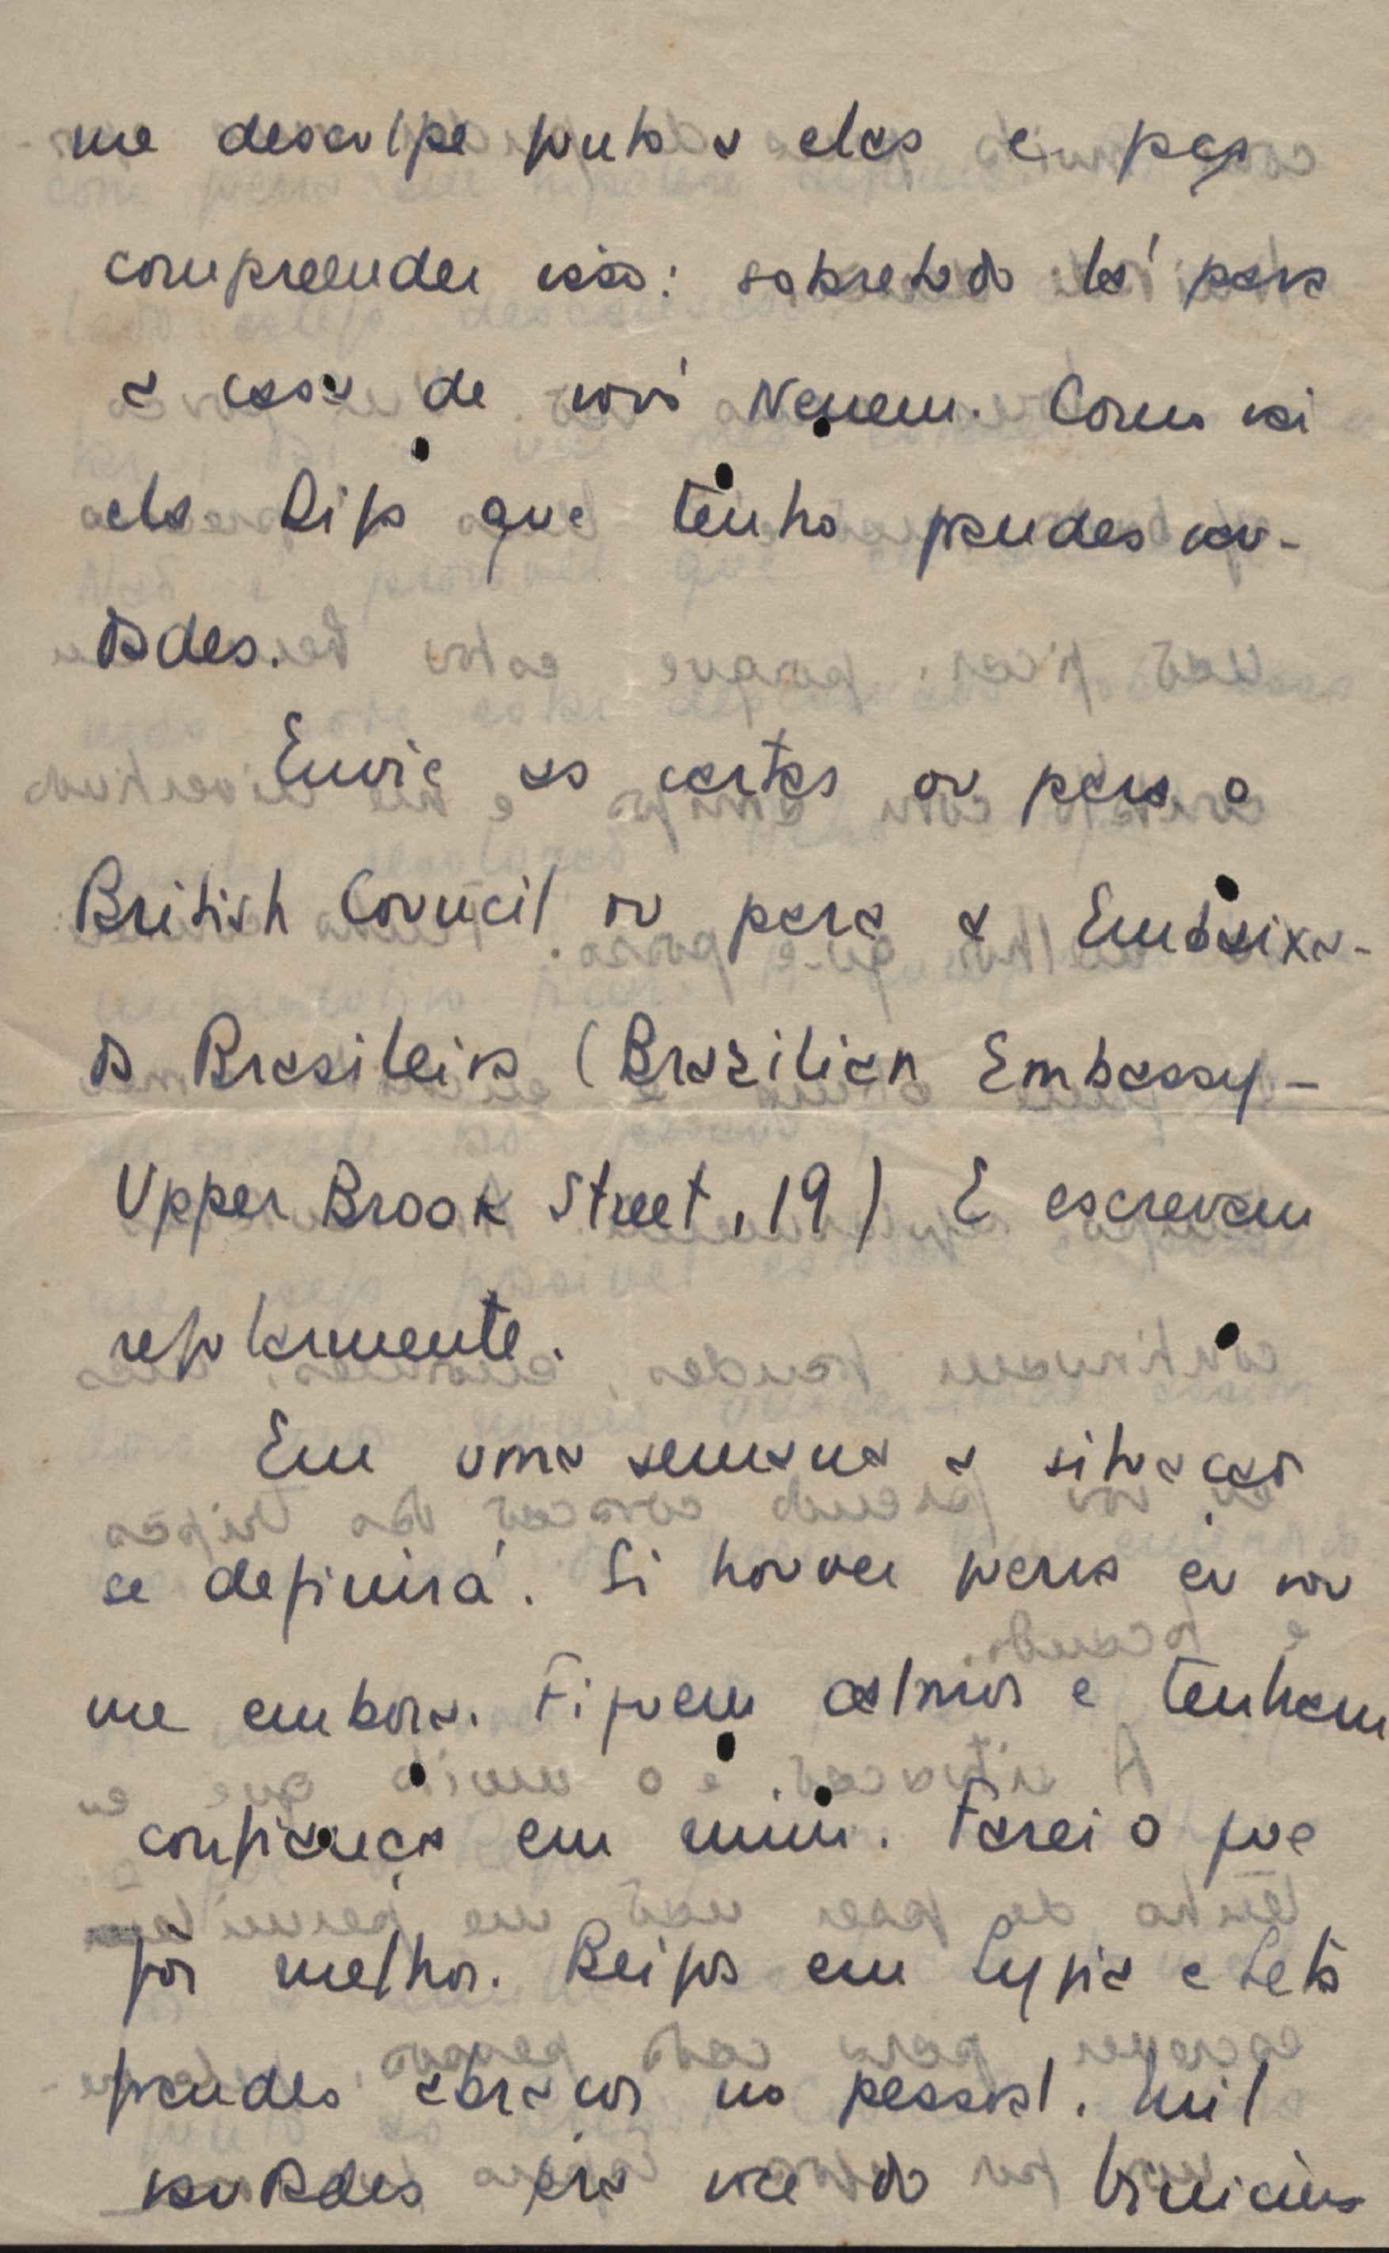 me desculpe junto a elas e faça
compreender isso: sobretudo lá para
a casa de vovó Neném. Como vai
ela Diga que tenho grandes sau-
dades.
Envie as cartas ou para o
British Council ou para a Embaixa-
da Brasileira (Brazilian Embassy-
Upper Brook Street, 19) E escrevam
regularmente.
Em uma semana a situação
se definirá. Si houver guerra eu vou
me embora. Fiquem calmos e tenham
confiança em mim. Farei o que
fôr melhor. Beijos em Lygia e Leta
grandes abraços no pessoal. Mil
saudades pra você do Vinicius